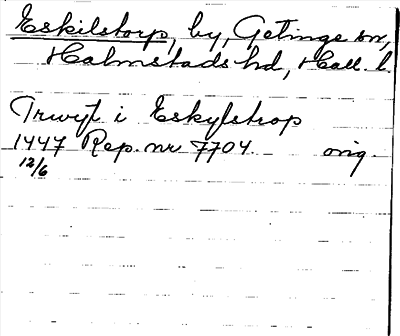 Eskilstorp, by, Getinge sn,
Halmstads hd, Hall. l.
i Eskylstrop
1447 Rep. nr 7704. orig.
12/6